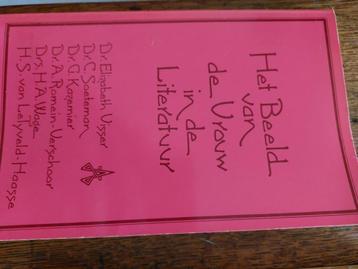 Het Beeld
van
de Vrouw
in de
Literatuur
Dr. Elisabeth Visser
Dr. C. Soeteman
Dr. G. Kazemier
Dr. A. Romein-Verschoor
Drs. H. A. Wage
H. S. van Lelyveld-Haasse